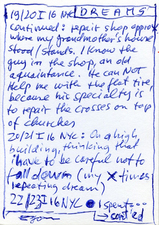 19/20 I 16 NYC DREAMS
continued: repair shop approx.
where my grandmother's house
stood/stands. I know the
guy in the shop, an old
aquaintance. He can Not
Help me with the flat tire
because his specialty is
to repair the crosses on top
of churches
20/21 I 16 NYC: On a high
building, thinking that
I have to be careful not to
fall down (my X times
repeating dream)
22/23 I 16 NYC I spent---
→ cont'ed